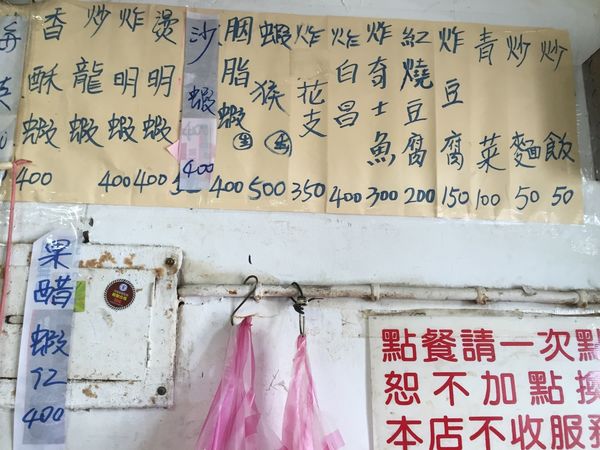 香酥蝦 400
炒龍蝦 400
炸明蝦 400
燙明蝦
沙蝦 400
胭脂蝦 400
蝦猴 500
炸花支 350
炸白昌 400
炸奇士魚 300
紅燒豆腐 200
炸豆腐 150
青菜 100
炒麵 50
炒飯 50
果醋蝦仁 400
點餐請一次點
恕不加點換
本店不收服務